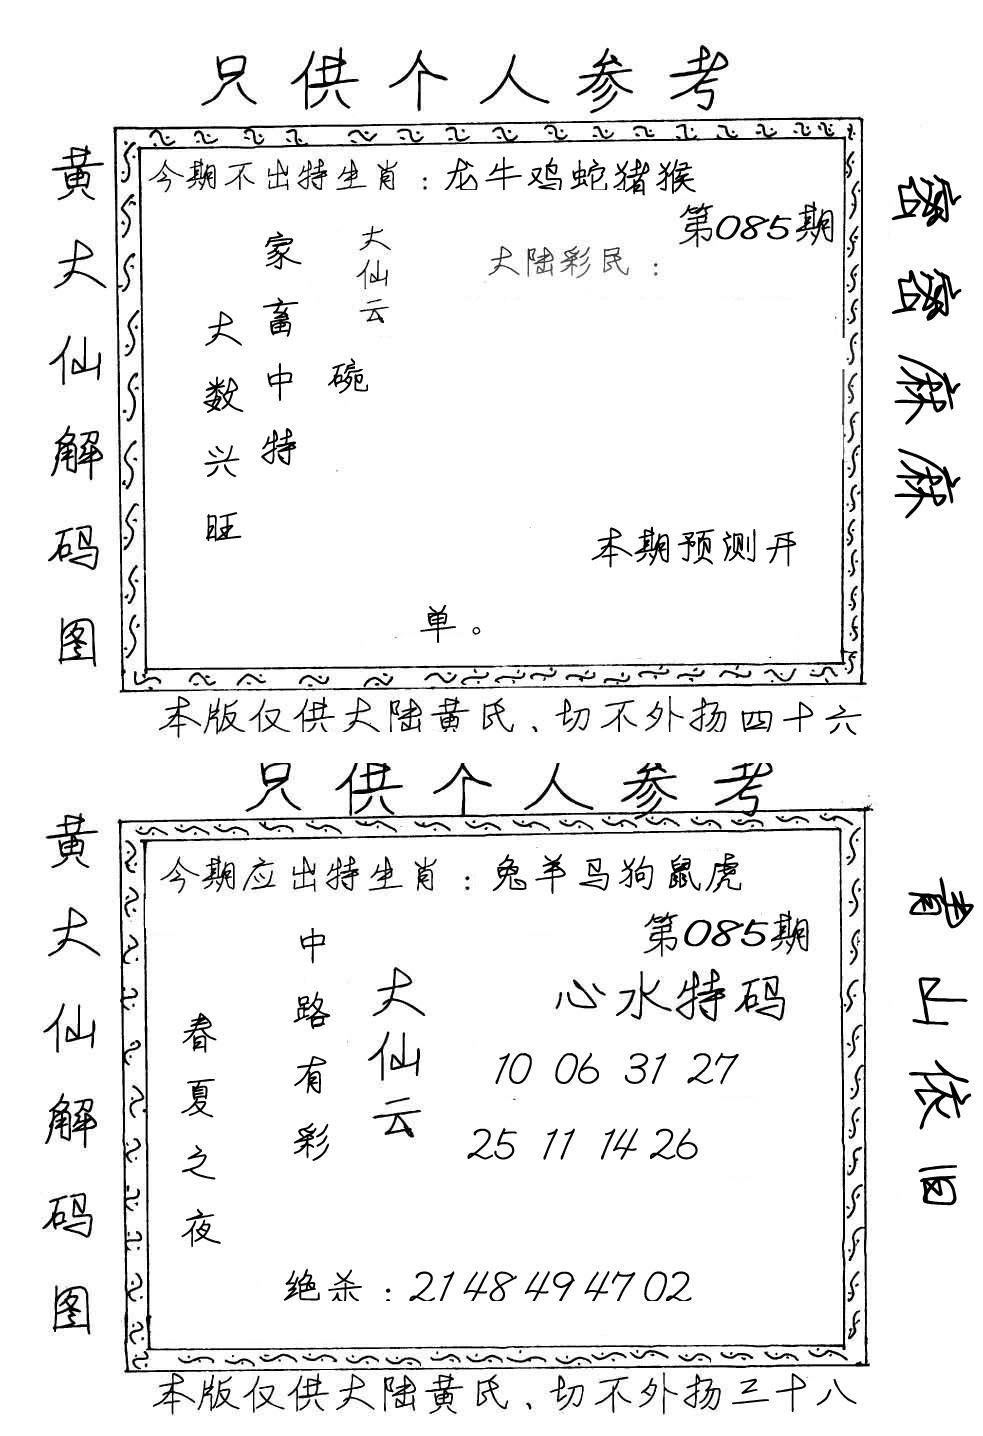 只供个人参考
黄大仙解码图
今期不出特生肖：龙牛鸡蛇猪猴
第085期
大仙云
大陆彩民：
家畜中特
大数兴旺
碗
本期预测开
单。
密密麻麻
本版仅供大陆黄氏、切不外扬四十六
只供个人参考
黄大仙解码图
今期应出特生肖：兔羊马狗鼠虎
第085期
中路有彩
大仙云
春夏之夜
心水特码
10 06 31 27
25 11 14 26
绝杀：21 48 49 47 02
青山依旧
本版仅供大陆黄氏、切不外扬三十八